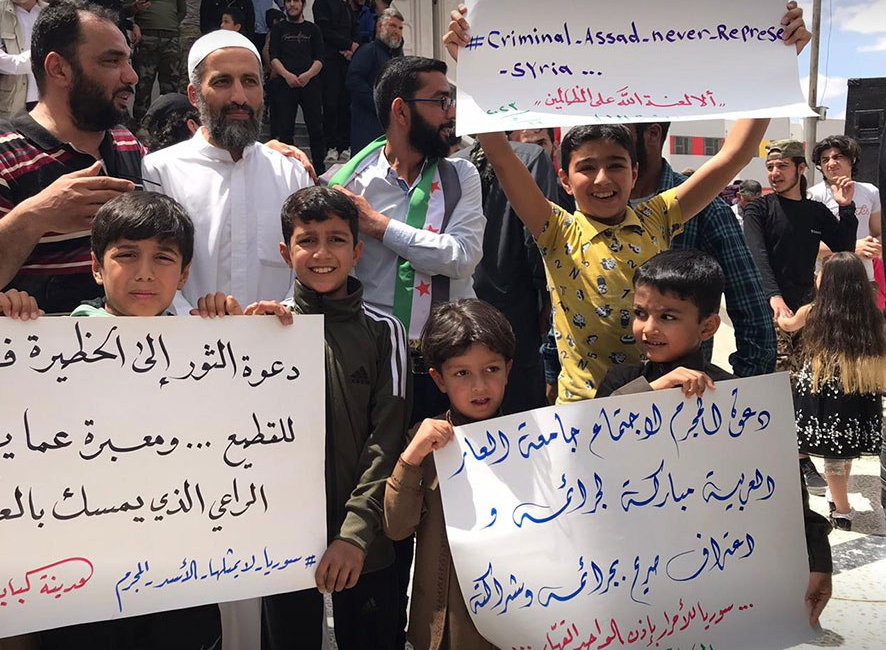 #Criminal_Assad_never_Represe
-Syria ...
"ألا لعنة الله على الظالمين"
دعوة الثور إلى الحظيرة
للقطيع ... ومعبرة عما
الراعي الذي يمسك
#سوريا_لا يمثلها_الأسد_المجرم
مدينة
دعوة المجرم لاجتماع جامعة العار
العربية مباركة لجرائمه و
اعتراف صريح بجرائمه وشراكته
... سوريا للأحرار بإذن الواحد القهار